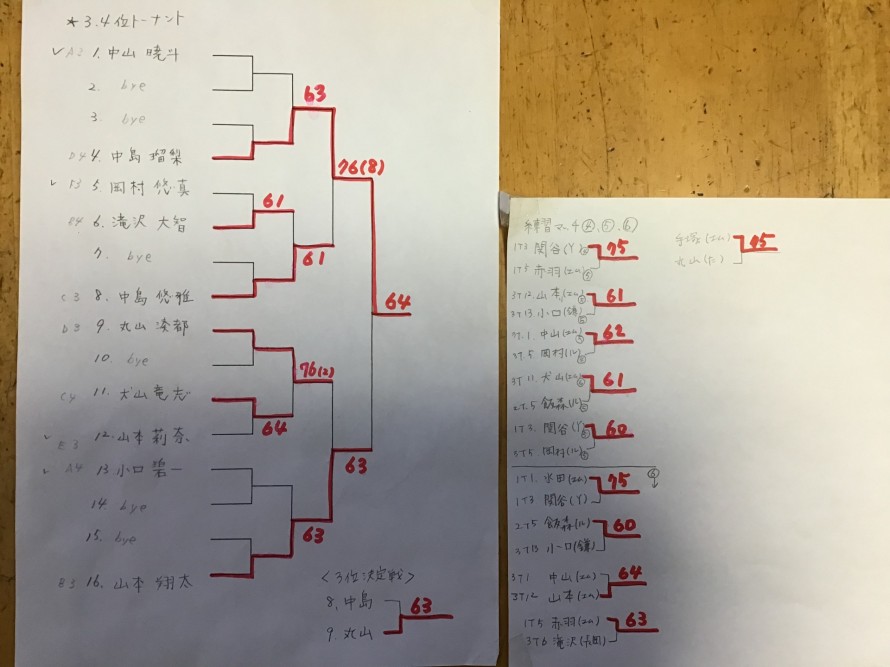 ★3.4位トーナメント
✓A2 1. 中山 暁斗
2. bye
3. bye
D4 4. 中島 瑠梨
✓ 5. 岡村 悠真
6. 滝沢 大智
7. bye
C3 8. 中島 悠雅
D3 9. 丸山 湊都
10. bye
C4 11. 犬山 竜志
✓ E3 12. 山本 莉奈
✓ A4 13 小口 碧一
14. bye
15. bye
B3 16. 山本 翔太
63
76(8)
61
61
64
76(2)
64
63
63
<3位決定戦>
8. 中島
63
9. 丸山
練習マッチ④、⑤、⑥
1T3 関谷(Y) 75
1T5 赤羽(エム)
3T12. 山本(エム) 61
3T13. 小口(鎌)
3T. 1. 中山(エム) 62
3T. 5. 岡村(ル)
3T 11. 犬山(エム) 61
2T. 5 飯森(ル)
1T 3. 関谷(Y) 60
3T5 岡村(ル)
⑥
1T1. 水田(エム) 75
1T3 関谷(Y)
2T5 飯森(ル) 60
3T13 小口(鎌)
3T1 中山(エム) 64
3T12 山本(エム)
1T5 赤羽(エム) 63
3T6 滝沢
手塚(エム)
丸山